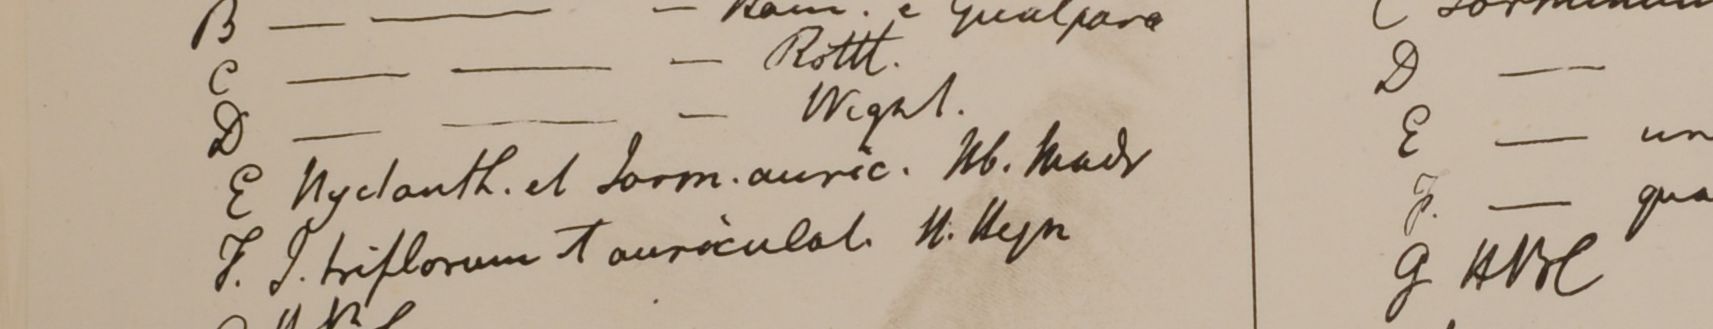 B — — — Ham. e Gualpara
C — — — Rottl.
D — — — Wight.
E Nyctanth. et Jasm. auric. Hb. Madr
F. J. triflorum + auriculat. H. Heyn
G HBC
D —
E — un
F. — gua
G HBC